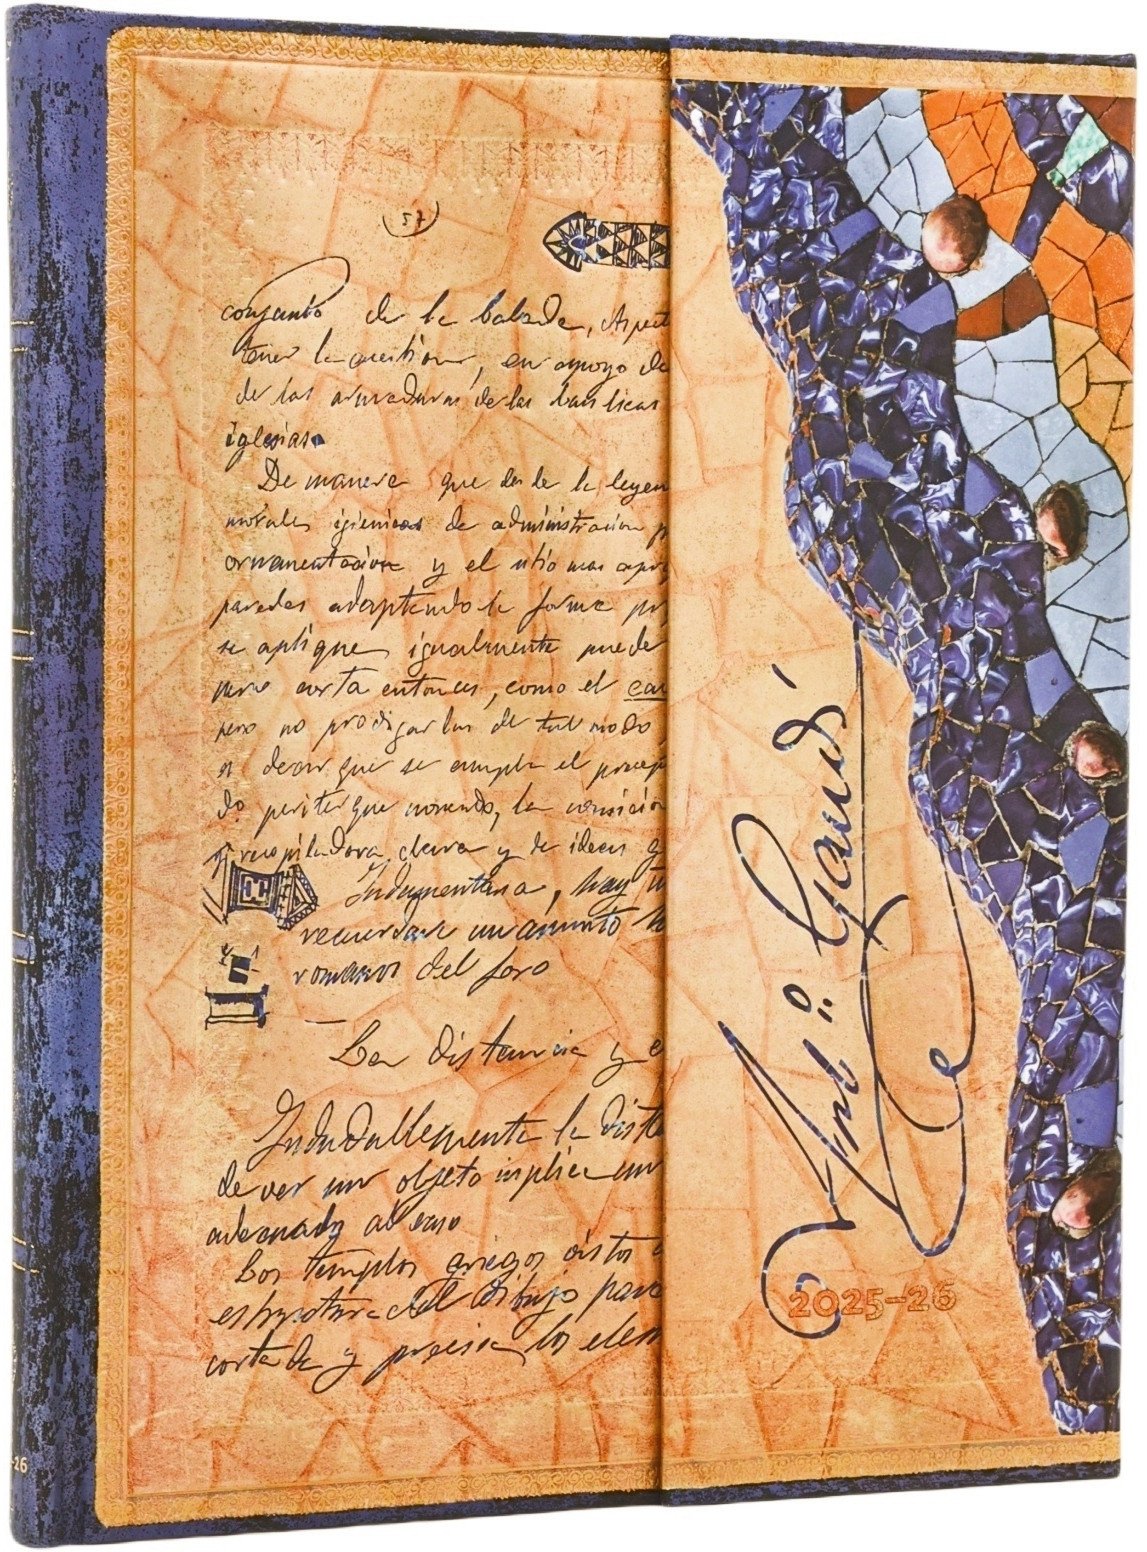 (57)
conjunto de la balada, Aspect
tener la cuestion, en apoyo de
de las armaduras de las basilicas
iglesias.
De manera que desde la leyen
morales igienicas de administracion p
ornamentacion y el sitio mas apro
paredes adaptando la forma pr
se aplique igualmente puede
pero corta entonces, como el cau
pero no prodigarlas de tal modo
a decir que se cumpla el precep
la
recopiladora, clara y de ideas q
Indumentaria, hay
recuerdare un asunto
romanos del foro
— La distancia y e
Indudablemente la dista
de ver un objeto implica un
adecuado al caso
Los templos griegos vistos
estructura del dibujo para
cortada y precisa los elem
Anto.º Gaudí
2025–26
-26